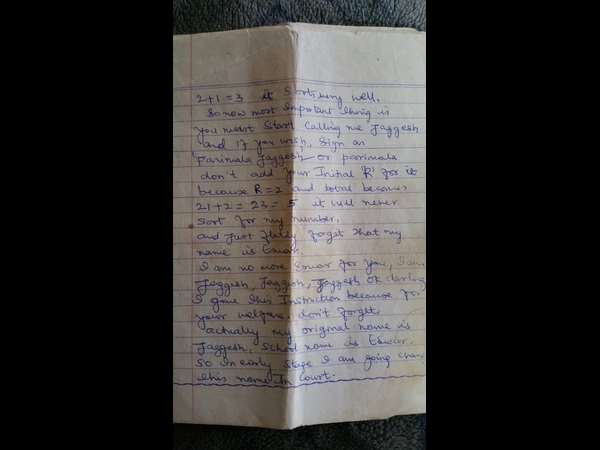 2+1=3 it Sorts very well.
So now most important thing is
you must Start calling me Jaggesh
and if you wish, Sign as
'parimala Jaggesh' or parimala
don't add your Initial 'R' for it
because R=2 and total becomes
21+2=23=5 it will never
Sort for my number.
and just fully forget that my
name is Eswar.
I am no more Eswar for you, I am
Jaggesh, Jaggesh, Jaggesh Ok darling
I gave this Instruction because for
your welfare. don't forget.
actually my original name is
Jaggesh, School name is Eswar.
So In early Stage I am going
this name In Court.